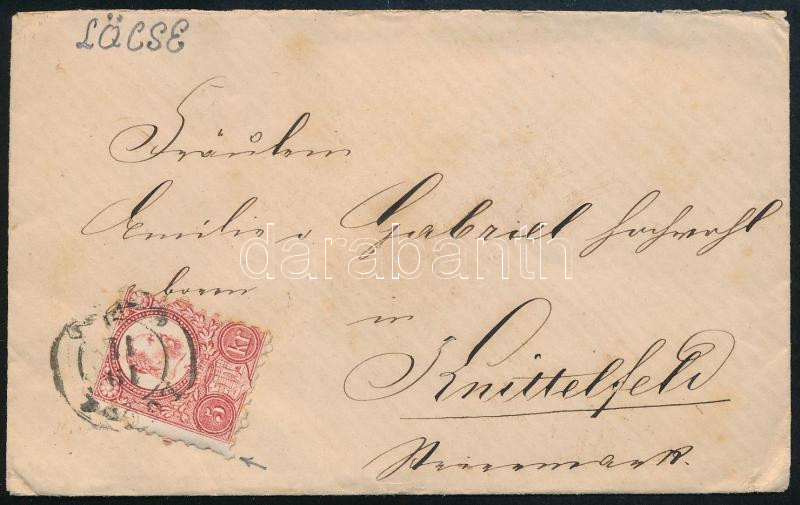 LÖCSE
Fräulein
Emilie v Gabriel hochwohl
geboren
in
Knittelfeld
Steiermark.
5 Kr
darabanth